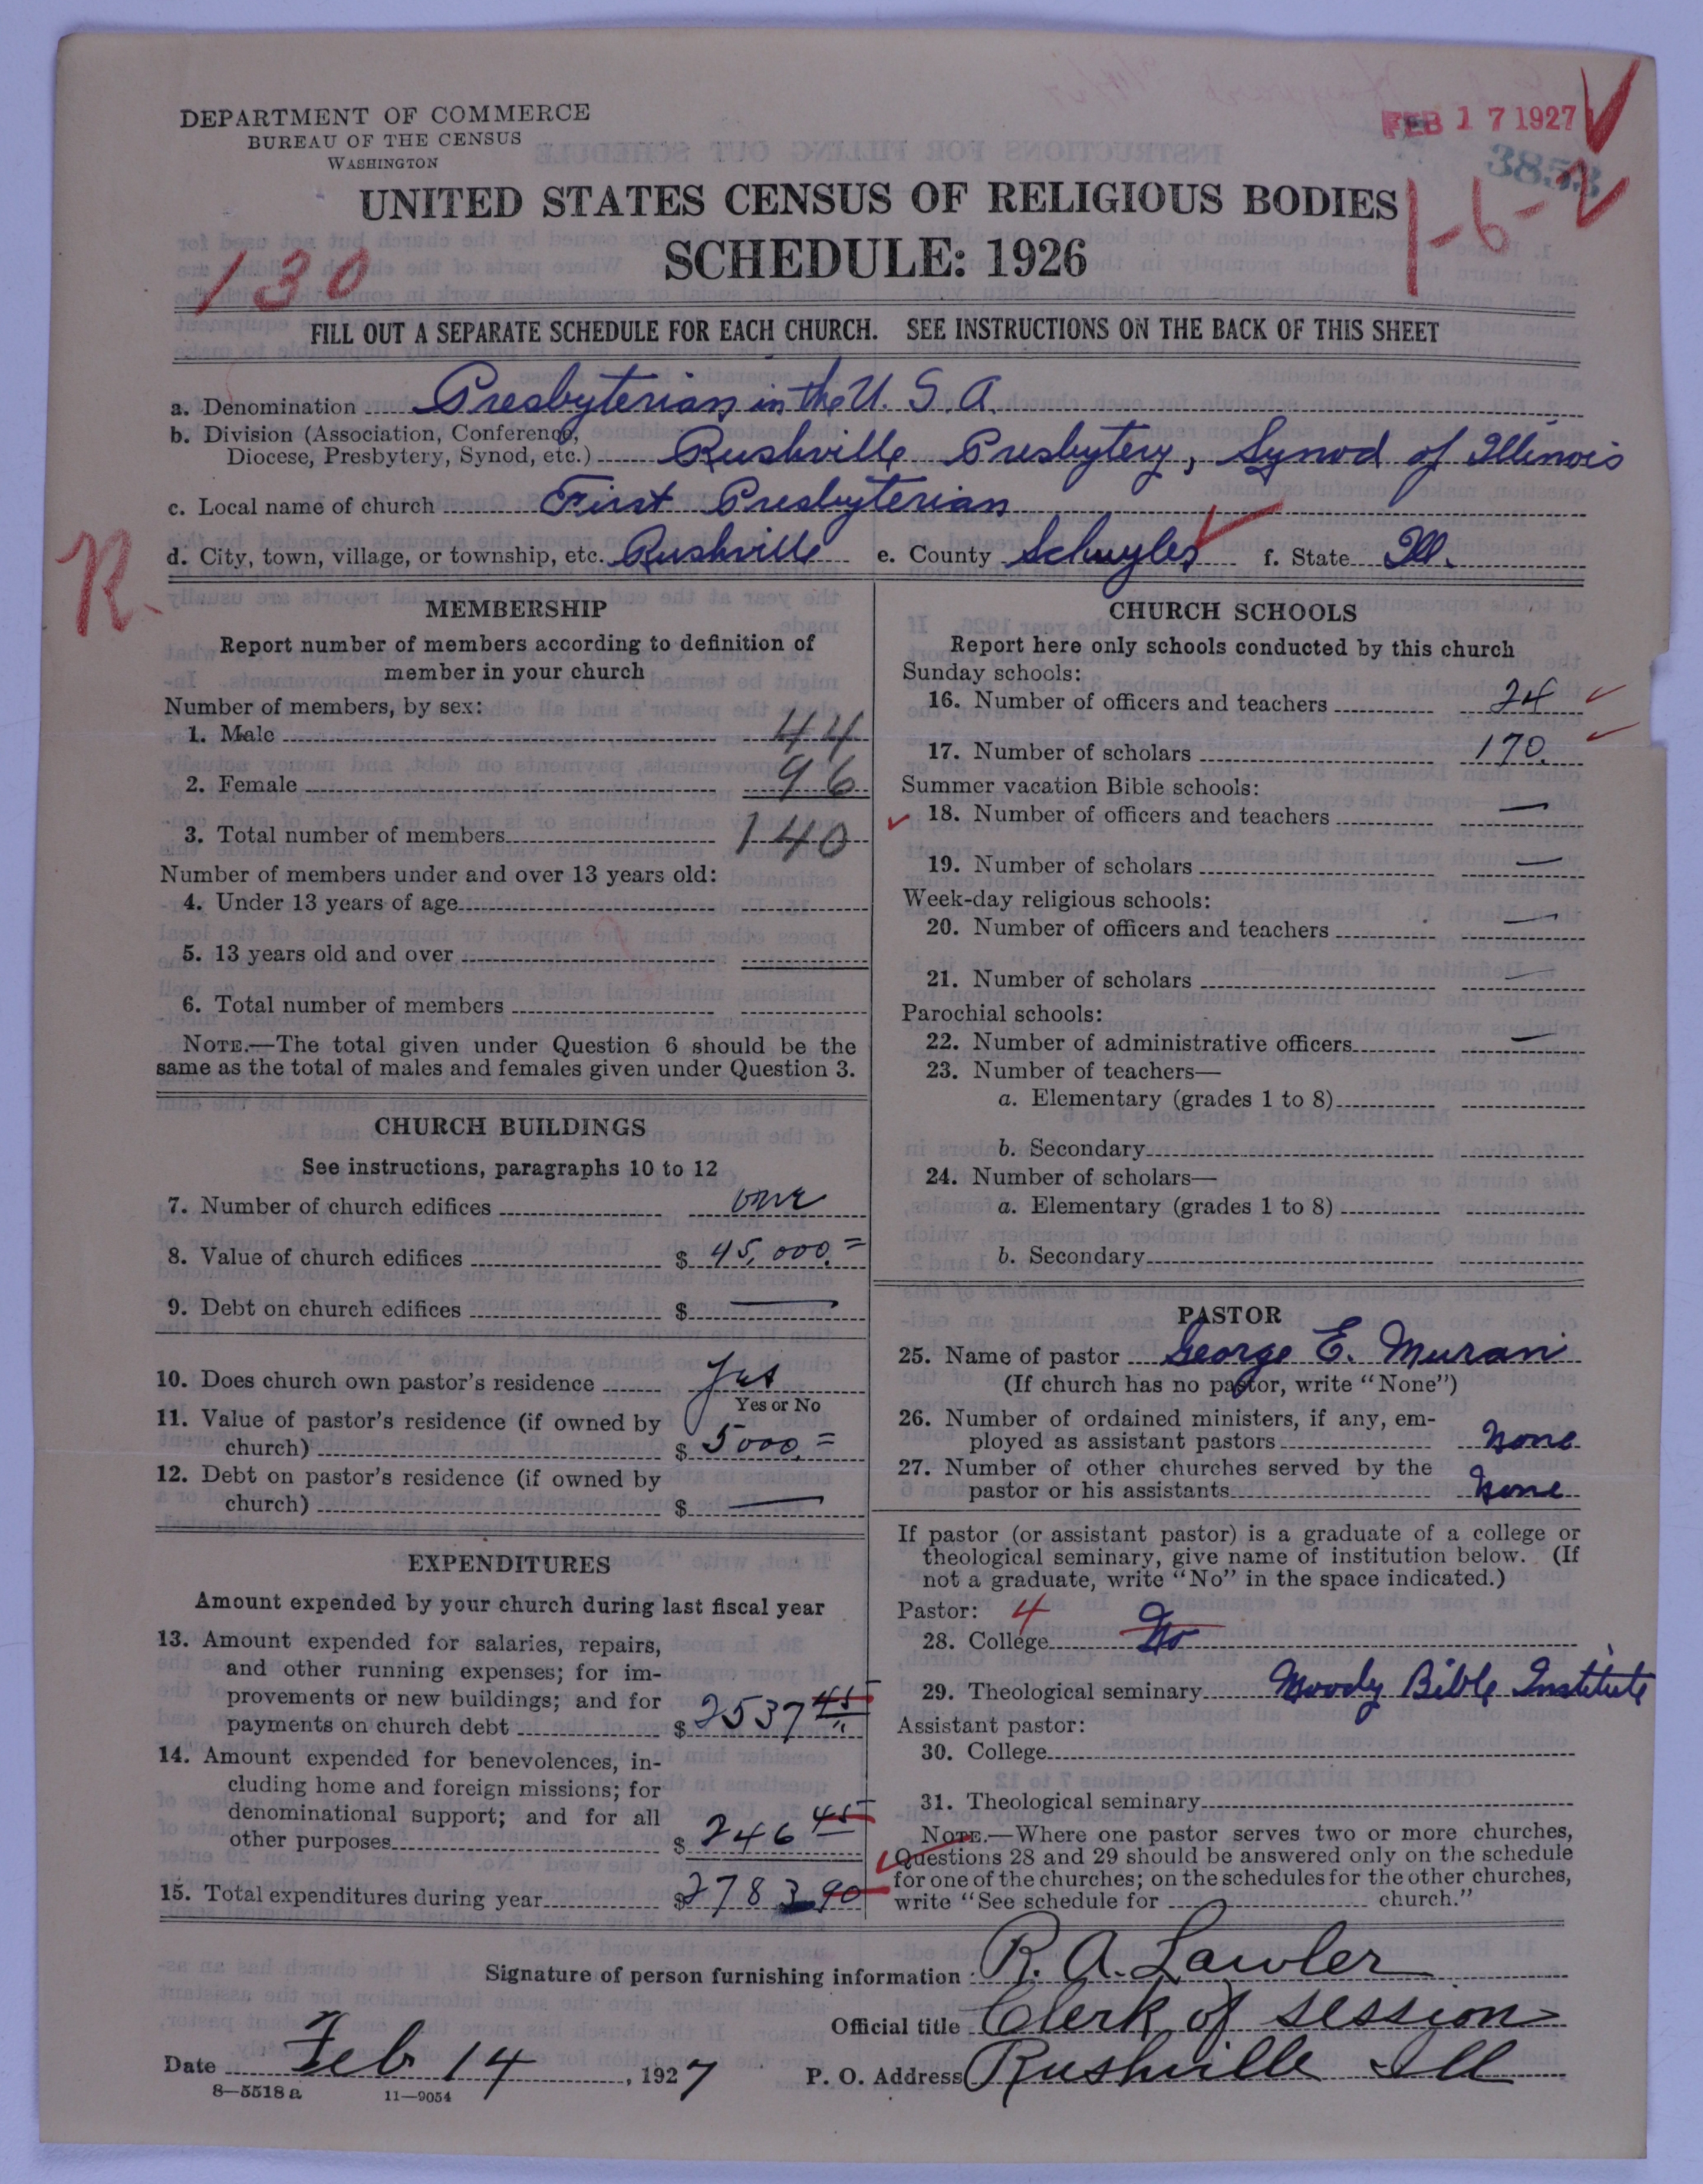 DEPARTMENT OF COMMERCE
BUREAU OF THE CENSUS
WASHINGTON
FEB 17 1927
3853
UNITED STATES CENSUS OF RELIGIOUS BODIES
1-6-2
SCHEDULE: 1926
130
FILL OUT A SEPARATE SCHEDULE FOR EACH CHURCH. SEE INSTRUCTIONS ON THE BACK OF THIS SHEET
a. Denomination Presbyterian in the U. S. A.
b. Division (Association, Conference,
Diocese, Presbytery, Synod, etc.) Rushville Presbytery, Synod of Illinois
c. Local name of church First Presbyterian
d. City, town, village, or township, etc. Rushville e. County Schuyler f. State Ill.
R.
MEMBERSHIP
Report number of members according to definition of
member in your church
Number of members, by sex:
1. Male 44
2. Female 96
3. Total number of members 140
Number of members under and over 13 years old:
4. Under 13 years of age
5. 13 years old and over
6. Total number of members
NOTE.—The total given under Question 6 should be the
same as the total of males and females given under Question 3.
CHURCH BUILDINGS
See instructions, paragraphs 10 to 12
7. Number of church edifices one
8. Value of church edifices $ 45,000.=
9. Debt on church edifices $ —
10. Does church own pastor's residence Yes
Yes or No
11. Value of pastor's residence (if owned by
church) $ 5000.=
12. Debt on pastor's residence (if owned by
church) $ —
EXPENDITURES
Amount expended by your church during last fiscal year
13. Amount expended for salaries, repairs,
and other running expenses; for im-
provements or new buildings; and for
payments on church debt $ 2537 45
14. Amount expended for benevolences, in-
cluding home and foreign missions; for
denominational support; and for all
other purposes $ 246 45
15. Total expenditures during year $ 2783 90
CHURCH SCHOOLS
Report here only schools conducted by this church
Sunday schools:
16. Number of officers and teachers 24
17. Number of scholars 170.
Summer vacation Bible schools:
18. Number of officers and teachers —
19. Number of scholars —
Week-day religious schools:
20. Number of officers and teachers —
21. Number of scholars —
Parochial schools:
22. Number of administrative officers —
23. Number of teachers—
a. Elementary (grades 1 to 8)
b. Secondary
24. Number of scholars—
a. Elementary (grades 1 to 8)
b. Secondary
PASTOR
25. Name of pastor George E. Muran
(If church has no pastor, write "None")
26. Number of ordained ministers, if any, em-
ployed as assistant pastors none
27. Number of other churches served by the
pastor or his assistants none
If pastor (or assistant pastor) is a graduate of a college or
theological seminary, give name of institution below. (If
not a graduate, write "No" in the space indicated.)
Pastor: 4
28. College No
29. Theological seminary Moody Bible Institute
Assistant pastor:
30. College
31. Theological seminary
NOTE.—Where one pastor serves two or more churches,
Questions 28 and 29 should be answered only on the schedule
for one of the churches; on the schedules for the other churches,
write "See schedule for church."
Signature of person furnishing information: R. A. Lawler
Official title Clerk of session
Date Feb 14, 1927 P. O. Address Rushville Ill
8—5518a 11—9054